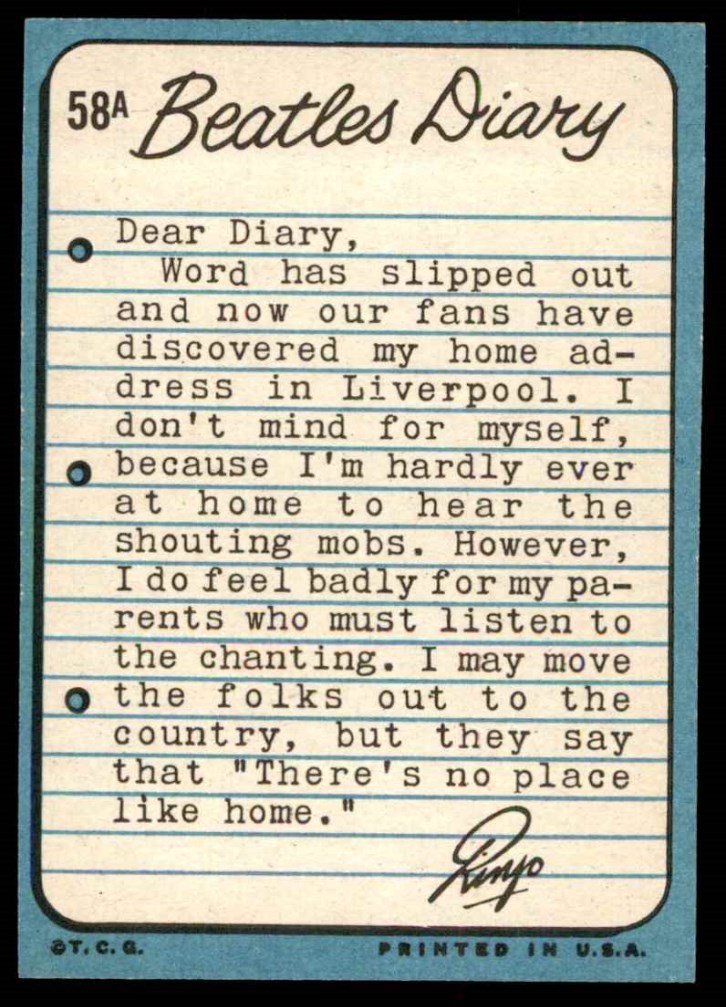 58A Beatles Diary
Dear Diary,
Word has slipped out
and now our fans have
discovered my home ad-
dress in Liverpool. I
don't mind for myself,
because I'm hardly ever
at home to hear the
shouting mobs. However,
I do feel badly for my pa-
rents who must listen to
the chanting. I may move
the folks out to the
country, but they say
that "There's no place
like home."
Ringo
©T.C.G.
PRINTED IN U.S.A.